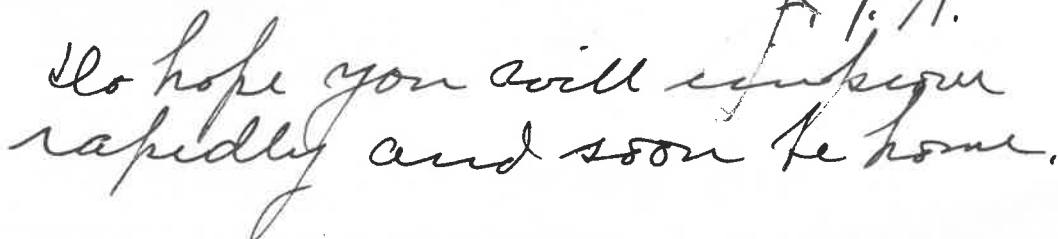 Do hope you will improve
rapidly and soon be home.